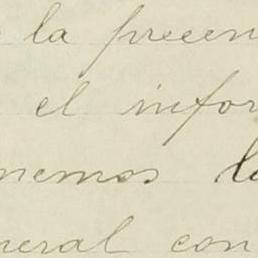 la presen
el infor
nemos la
neral con